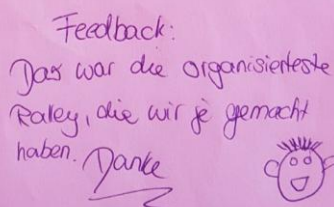 Feedback:
Das war die organisierteste
Raley, die wir je gemacht
haben. Danke